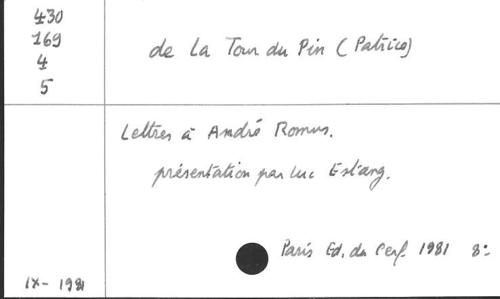 430
169
4
5
de La Tour du Pin (Patrice)
Lettres à André Romus.
présentation par Luc Estang.
Paris Ed. du Cerf 1981 8°
IX - 1981